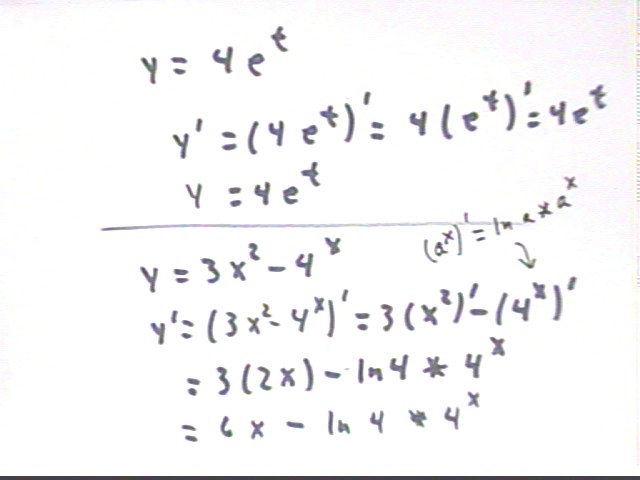 y = 4e^t
y' = (4e^t)' = 4(e^t)' = 4e^t
y = 4e^t
(a^x)' = ln a * a^x
y = 3x^2 - 4^x
y' = (3x^2 - 4^x)' = 3(x^2)' - (4^x)'
= 3(2x) - ln4 * 4^x
= 6x - ln 4 * 4^x